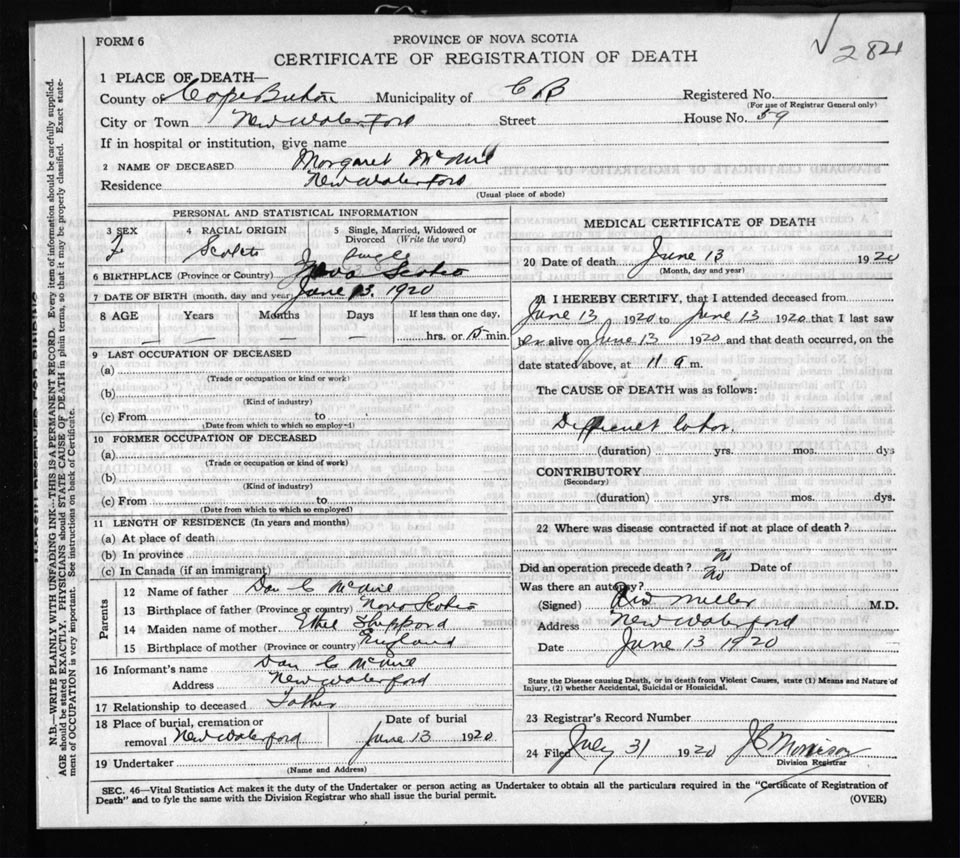 FORM 6
PROVINCE OF NOVA SCOTIA
CERTIFICATE OF REGISTRATION OF DEATH
√ 284
1 PLACE OF DEATH—
County of Cape Breton Municipality of C B Registered No.
(For use of Registrar General only)
City or Town New Waterford Street House No. 59
If in hospital or institution, give name
2 NAME OF DECEASED Margaret McNeil
Residence New Waterford
(Usual place of abode)
PERSONAL AND STATISTICAL INFORMATION
3 SEX 4 RACIAL ORIGIN 5 Single, Married, Widowed or Divorced (Write the word)
F Scotch Single
6 BIRTHPLACE (Province or Country) Nova Scotia
7 DATE OF BIRTH (month, day and year) June 13. 1920
8 AGE Years Months Days If less than one day,
— — — hrs. or 15 min.
9 LAST OCCUPATION OF DECEASED
(a)
(Trade or occupation or kind of work)
(b)
(Kind of industry)
(c) From to
(Date from which to which so employed)
10 FORMER OCCUPATION OF DECEASED
(a)
(Trade or occupation or kind of work)
(b)
(Kind of industry)
(c) From to
(Date from which to which so employed)
11 LENGTH OF RESIDENCE (In years and months)
(a) At place of death
(b) In province
(c) In Canada (if an immigrant)
Parents
12 Name of father Dan C McNeil
13 Birthplace of father (Province or country) Nova Scotia
14 Maiden name of mother Ethel Sheppard
15 Birthplace of mother (Province or country) England
16 Informant's name Dan C McNeil
Address New Waterford
17 Relationship to deceased Father
18 Place of burial, cremation or removal New Waterford
Date of burial June 13 1920
19 Undertaker
(Name and Address)
MEDICAL CERTIFICATE OF DEATH
20 Date of death June 13 1920
(Month, day and year)
21 I HEREBY CERTIFY, that I attended deceased from
June 13 1920 to June 13 1920 that I last saw
alive on June 13 1920 and that death occurred, on the
date stated above, at 11 a m.
The CAUSE OF DEATH was as follows:
Difficult labor.
(duration) yrs. mos. dys
CONTRIBUTORY
(Secondary)
(duration) yrs. mos. dys.
22 Where was disease contracted if not at place of death?
Did an operation precede death? no Date of
Was there an autopsy? no
(Signed) Miller M.D.
Address New Waterford
Date June 13 1920
State the Disease causing Death, or in death from Violent Causes, state (1) Means and Nature of
Injury, (2) whether Accidental, Suicidal or Homicidal.
23 Registrar's Record Number
24 Filed July 31 1920 J C Morrison
Division Registrar
SEC. 46—Vital Statistics Act makes it the duty of the Undertaker or person acting as Undertaker to obtain all the particulars required in the "Certificate of Registration of
Death" and to fyle the same with the Division Registrar who shall issue the burial permit.
(OVER)
N.B.—WRITE PLAINLY WITH UNFADING INK—THIS IS A PERMANENT RECORD. Every item of information should be carefully supplied.
AGE should be stated EXACTLY. PHYSICIANS should STATE CAUSE OF DEATH in plain terms, so that it may be properly classified. Exact state-
ment of OCCUPATION is very important. See instructions on back of Certificate.